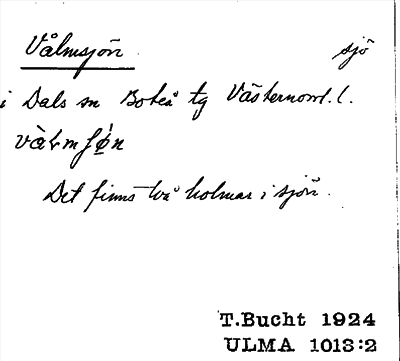 Vålmsjön sjö
i Dals sn Boteå tg Västernorrl. l.
vàʟmʃø̀n
Det finns två holmar i sjön.
T.Bucht 1924
ULMA 1013:2